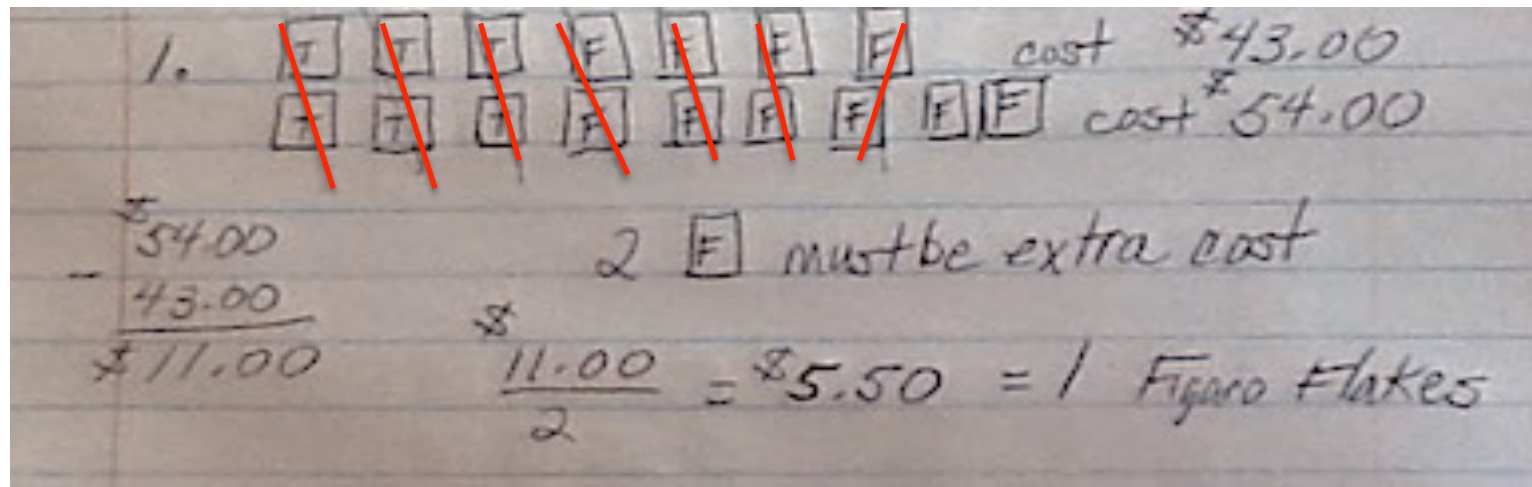 1. T T T F F F F cost $43.00
T T T F F F F F F cost $54.00
$54.00
- 43.00
$11.00
2 F must be extra cost
$11.00
2
= $5.50 = 1 Figaro Flakes